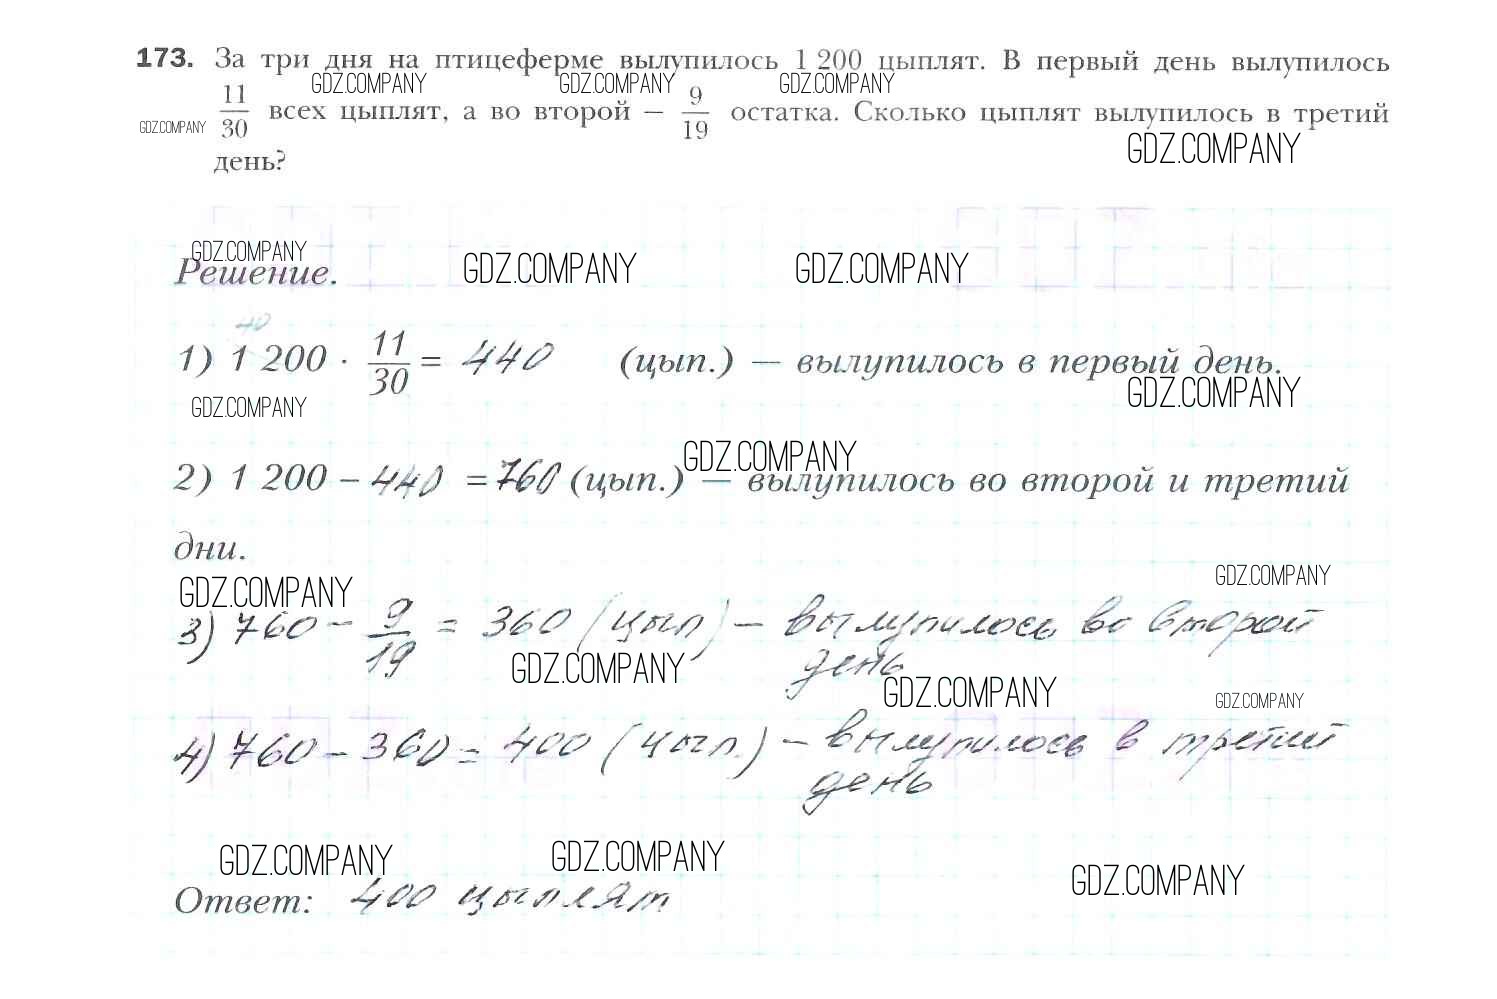 173. За три дня на птицеферме вылупилось 1 200 цыплят. В первый день вылупилось
GDZ.COMPANY GDZ.COMPANY GDZ.COMPANY
11/30 всех цыплят, а во второй – 9/19 остатка. Сколько цыплят вылупилось в третий
GDZ.COMPANY
день?
GDZ.COMPANY
GDZ.COMPANY
Решение.
GDZ.COMPANY GDZ.COMPANY
40
1) 1 200 · 11/30 = 440 (цып.) — вылупилось в первый день.
GDZ.COMPANY GDZ.COMPANY
GDZ.COMPANY
2) 1 200 – 440 = 760 (цып.) — вылупилось во второй и третий
дни.
GDZ.COMPANY GDZ.COMPANY
3) 760 – 9/19 = 360 (цып) – вылупилось во второй
день
GDZ.COMPANY GDZ.COMPANY GDZ.COMPANY
4) 760 – 360 = 400 (цып.) – вылупилось в третий
день
GDZ.COMPANY GDZ.COMPANY GDZ.COMPANY
Ответ: 400 цыплят